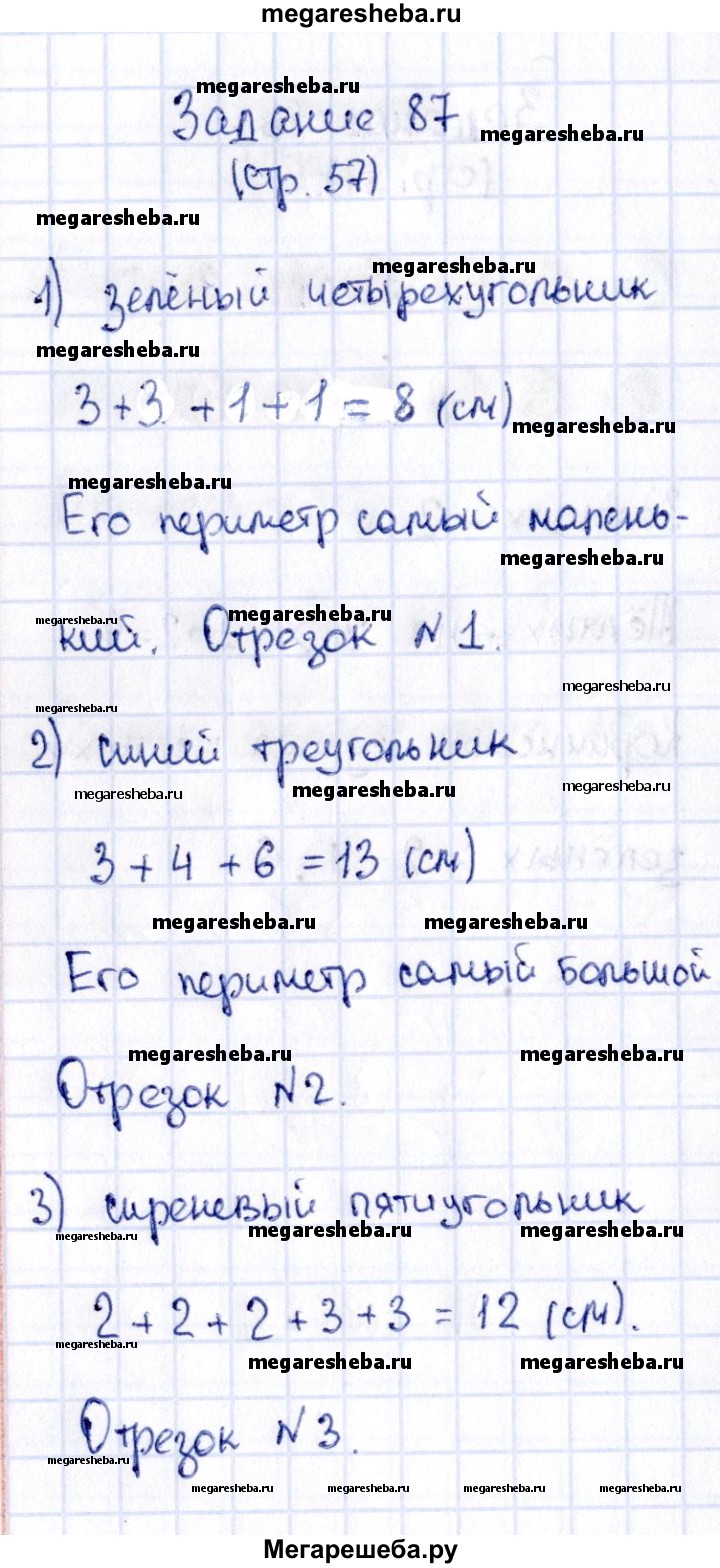 megaresheba.ru
megaresheba.ru
Задание 87
megaresheba.ru
(стр. 57)
megaresheba.ru
megaresheba.ru
1) зелёный четырехугольник
megaresheba.ru
3+3+1+1=8 (см)
megaresheba.ru
megaresheba.ru
Его периметр самый малень-
megaresheba.ru
megaresheba.ru megaresheba.ru
кий. Отрезок №1.
megaresheba.ru
megaresheba.ru
2) синий треугольник
megaresheba.ru megaresheba.ru megaresheba.ru
3+4+6=13 (см)
megaresheba.ru megaresheba.ru
Его периметр самый большой
megaresheba.ru megaresheba.ru
Отрезок №2.
3) сиреневый пятиугольник
megaresheba.ru megaresheba.ru megaresheba.ru
2+2+2+3+3=12 (см).
megaresheba.ru megaresheba.ru megaresheba.ru
Отрезок №3.
megaresheba.ru megaresheba.ru megaresheba.ru megaresheba.ru megaresheba.ru
Мегарешеба.ру